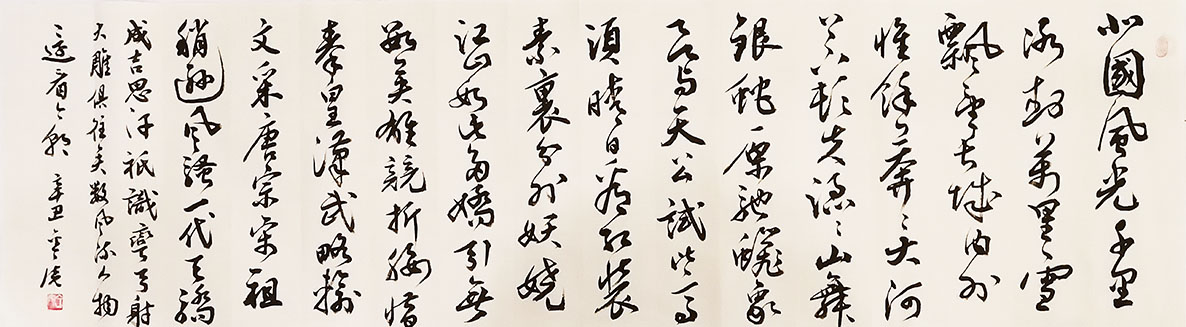 北國風光千里
冰封萬里雪
飄望長城內外
惟餘莽々大河
上下頓失滔々山舞
銀蛇原馳蠟象
欲與天公試比高
須晴日看紅裝
素裹分外妖嬈
江山如此多嬌引無
數英雄競折腰惜
秦皇漢武略輸
文采唐宗宋祖
稍遜風騷一代天驕
成吉思汗祇識彎弓射
大雕俱往矣數風流人物
還看今朝 辛丑